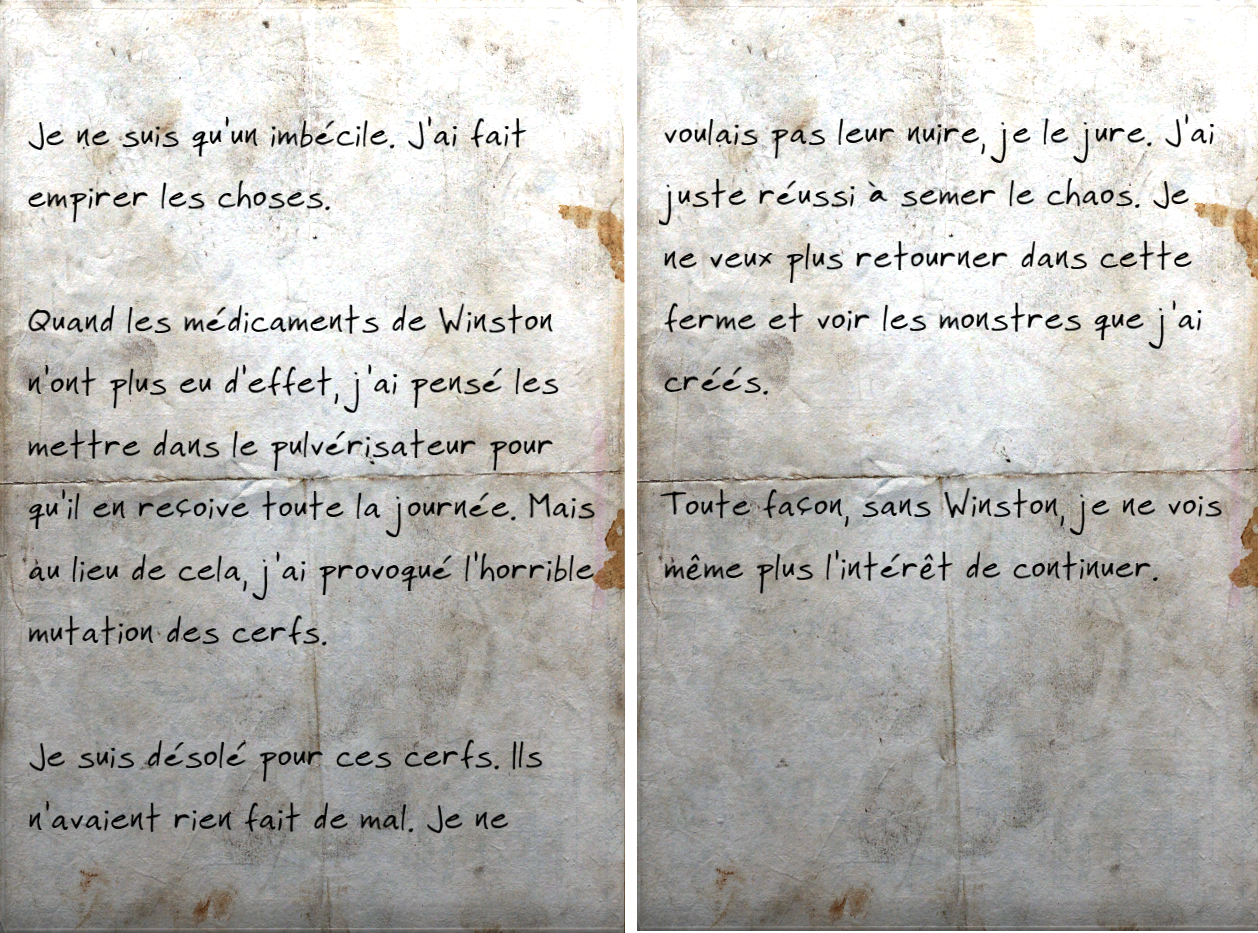 Je ne suis qu'un imbécile. J'ai fait
empirer les choses.
Quand les médicaments de Winston
n'ont plus eu d'effet, j'ai pensé les
mettre dans le pulvérisateur pour
qu'il en reçoive toute la journée. Mais
au lieu de cela, j'ai provoqué l'horrible
mutation des cerfs.
Je suis désolé pour ces cerfs. Ils
n'avaient rien fait de mal. Je ne
voulais pas leur nuire, je le jure. J'ai
juste réussi à semer le chaos. Je
ne veux plus retourner dans cette
ferme et voir les monstres que j'ai
créés.
Toute façon, sans Winston, je ne vois
même plus l'intérêt de continuer.